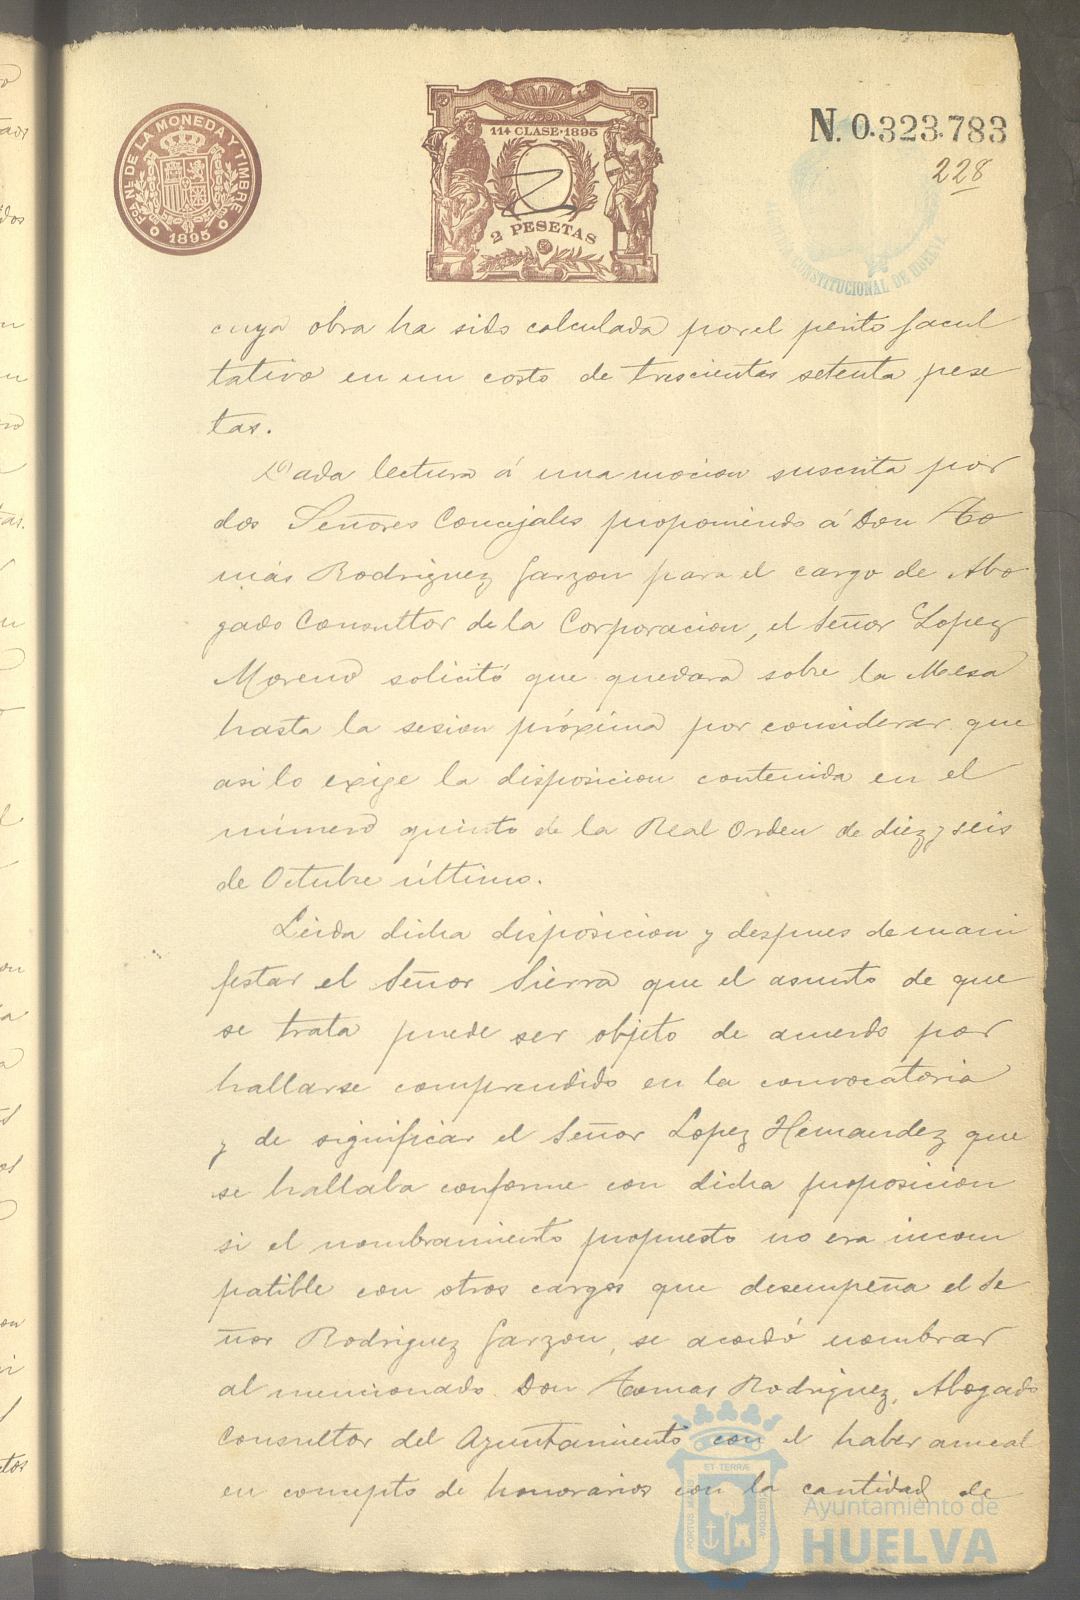 Fca. Nl. DE LA MONEDA Y TIMBRE
1895
11ª CLASE·1895
2 PESETAS
N. 0.323.783
228
CONSTITUCIONAL DE HUELVA
cuya obra ha sido calculada por el perito facul
tativo en un costo de trescientas setenta pese
tas.
Dada lectura á una mocion suscrita por
dos Señores Concejales proponiendo á Don To
más Rodriguez Garzon para el cargo de Abo
gado Consultor de la Corporacion, el Señor Lopez
Moreno solicitó que quedara sobre la Mesa
hasta la sesion próxima por considerar que
asi lo exige la disposicion contenida en el
número quinto de la Real Orden de diez y seis
de Octubre último.
Leida dicha disposicion y despues de mani
festar el Señor Sierra que el asunto de que
se trata puede ser objeto de acuerdo por
hallarse comprendido en la convocatoria
y de significar el Señor Lopez Hernandez que
se hallaba conforme con dicha proposicion
si el nombramiento propuesto no era incom
patible con otros cargos que desempeña el Se
ñor Rodriguez Garzon, se acordó nombrar
al mencionado Don Tomas Rodriguez, Abogado
Consultor del Ayuntamiento con el haber anual
en concepto de honorarios con la cantidad de
PORTUS MARIS ET TERRÆ CUSTODIA
Ayuntamiento de
HUELVA